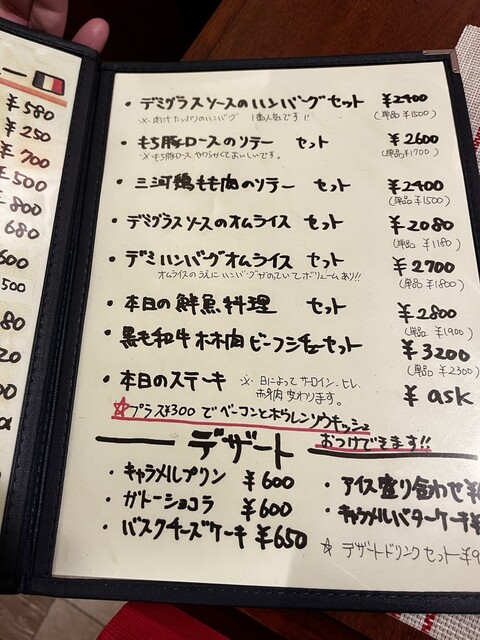 ー
¥580
¥250
¥700
¥500
¥800
680
600
500
80
20
・デミグラスソースのハンバーグセット ¥2400
※肉汁たっぷりのハンバーグ 1番人気です!! (単品¥1500)
・もち豚ロースのソテー セット ¥2600
※もち豚ロース やわらかくておいしいです。 (単品¥1700)
・三河鶏もも肉のソテー セット ¥2400
(単品¥1500)
・デミグラスソースのオムライス セット ¥2080
(単品¥1180)
・デミハンバーグオムライス セット ¥2700
オムライスのうえにハンバーグがのっていてボリュームあり!! (単品¥1800)
・本日の鮮魚料理 セット ¥2800
(単品¥1900)
・黒毛和牛ホホ肉ビーフシチューセット ¥3200
(単品¥2300)
・本日のステーキ ※日によってサーロイン、ヒレ、 ¥ask
ホホ肉変わります。
☆プラス¥300でベーコンとほうれんソウキッシュ
おつけできます!!
デザート
・キャラメルプリン ¥600
・ガトーショコラ ¥600
・バスクチーズケーキ ¥650
・アイス盛り合わせ¥
・キャラメルバターケーキ¥
☆デザートドリンクセット¥9